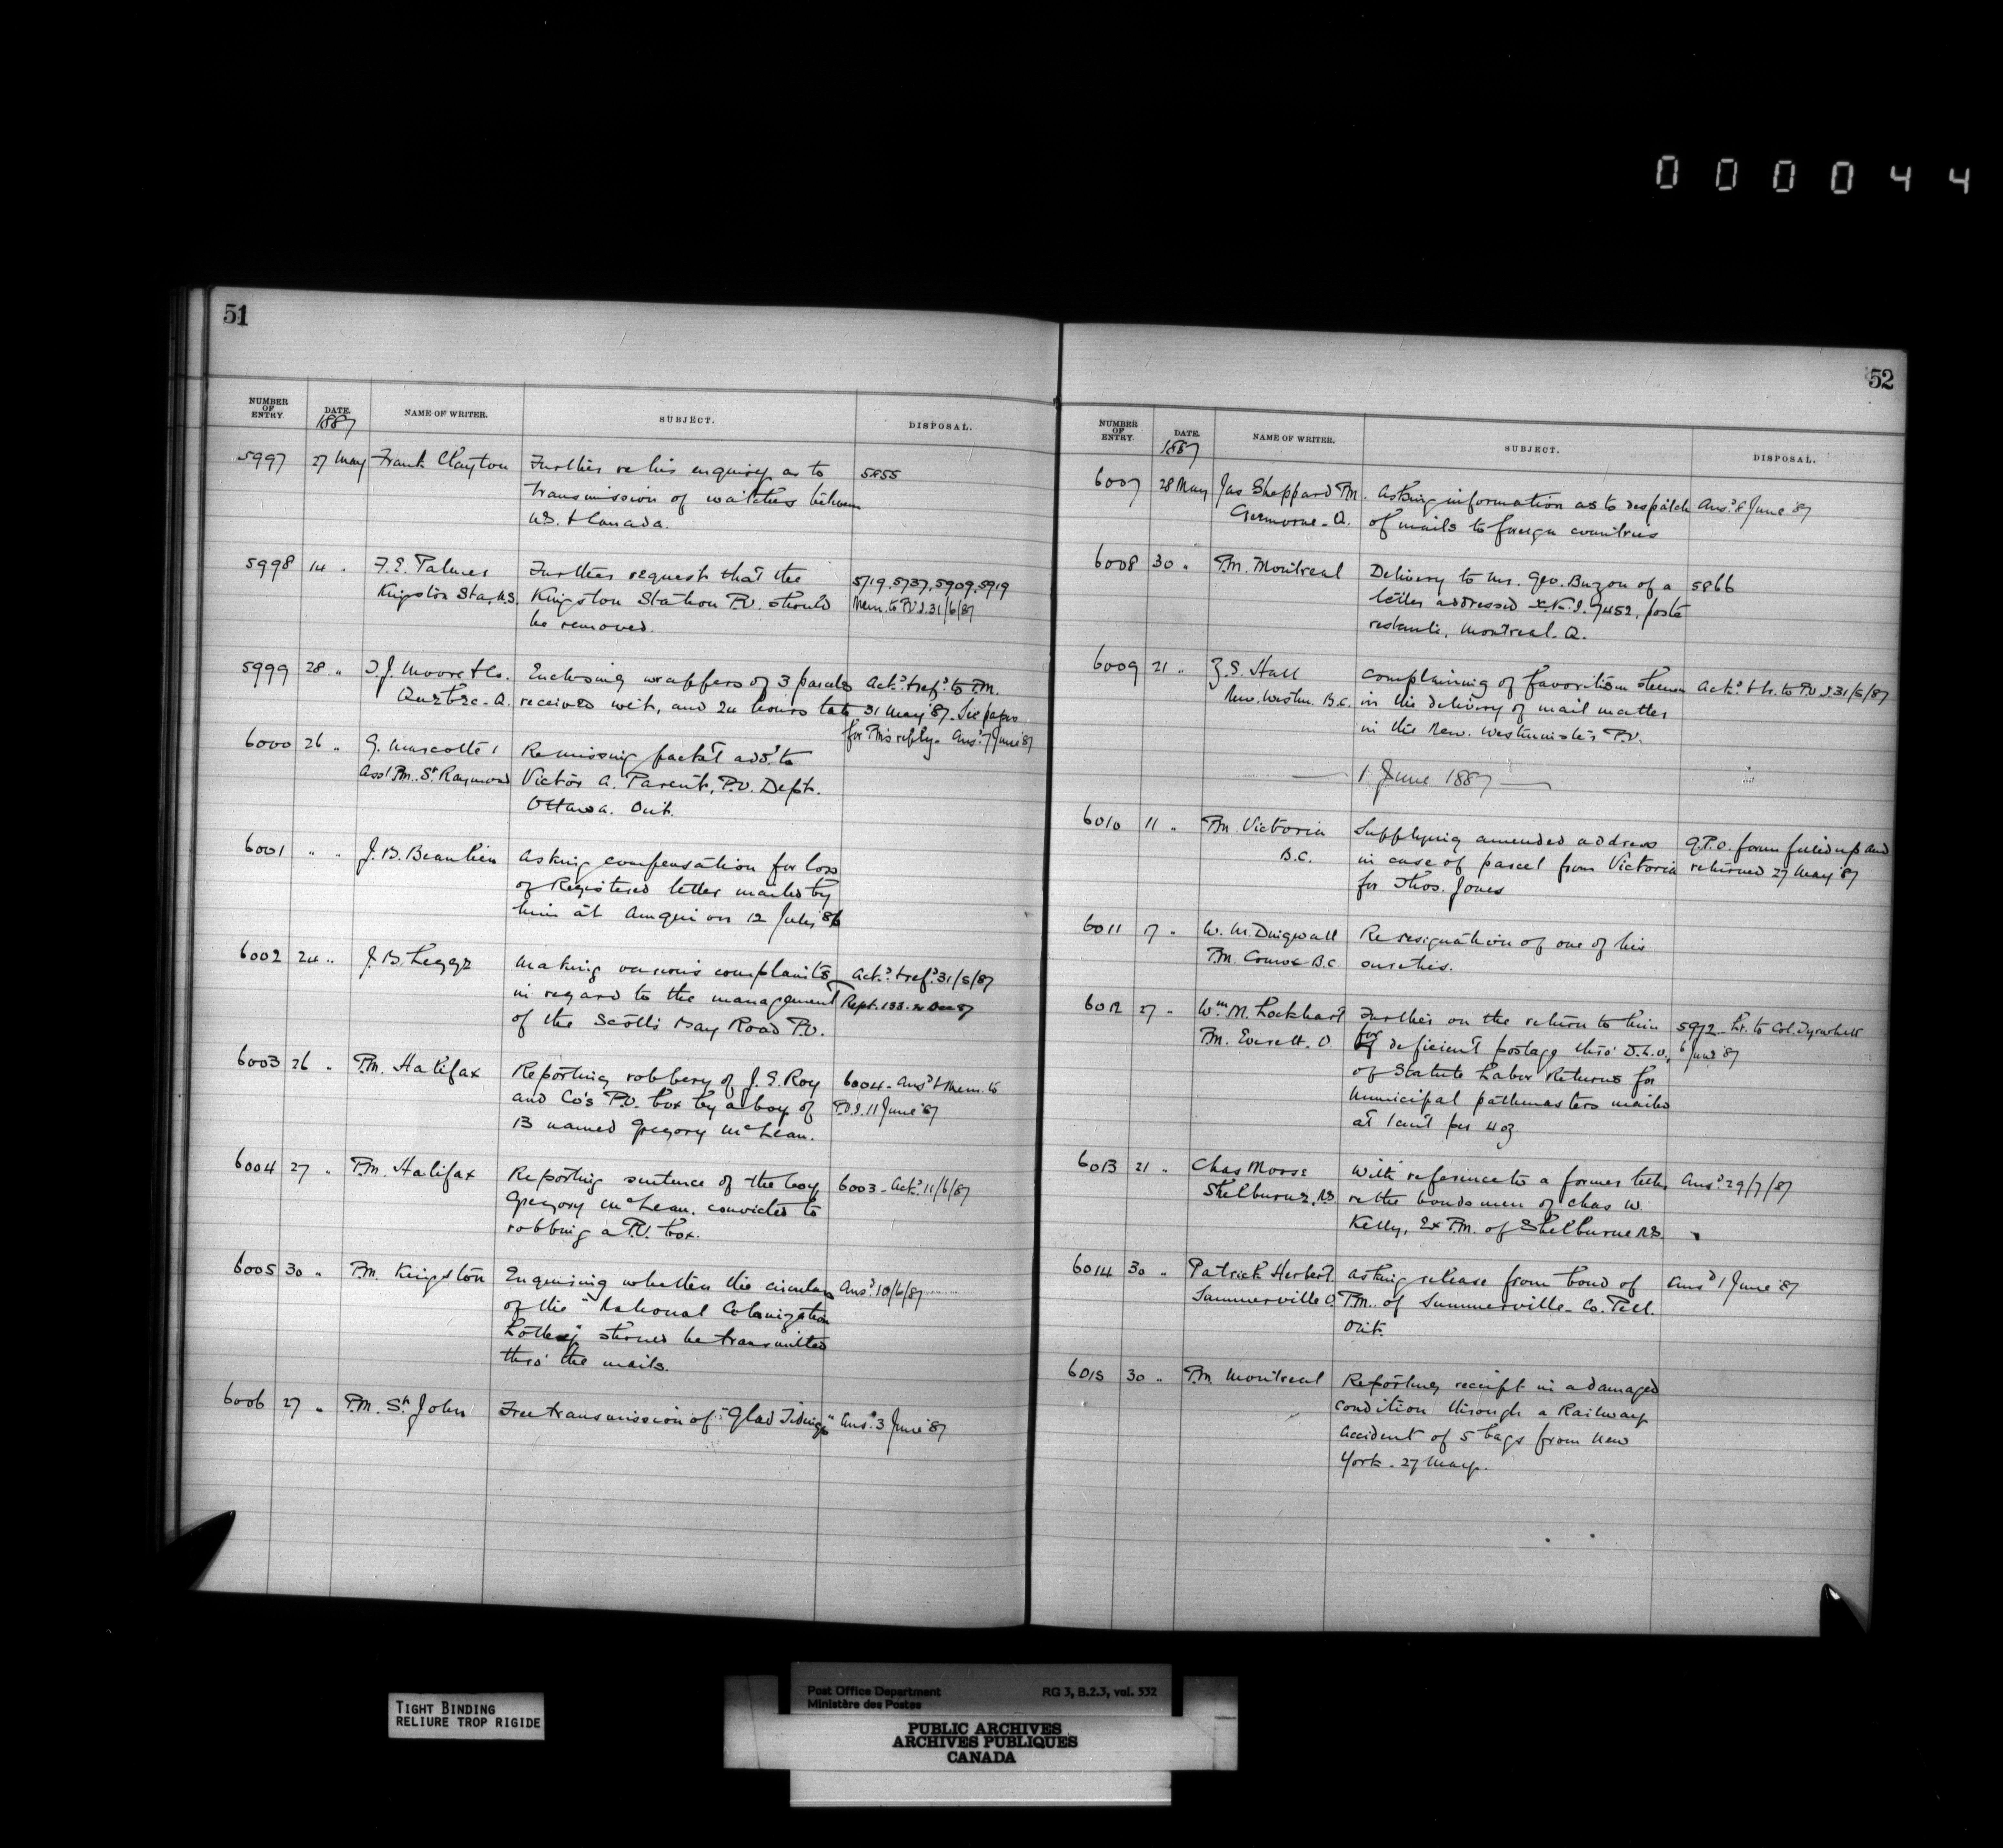 000044
51
NUMBER OF ENTRY. DATE. 1887 NAME OF WRITER. SUBJECT. DISPOSAL.
5997 27 May Frank Clayton Further re his enquiry as to 5855
transmission of watches between
U.S. & Canada.
5998 14 " F. E. Palmer Further request that the 5719, 5737, 5909, 5919
Kingston Sta, N.S. Kingston Station P.O. should Mem. to P.O.I. 31/6/87
be removed.
5999 28 " Moore & Co. Enclosing wrappers of 3 parcels Ackd. & refd. to P.M.
Quebec. Q. received wet, and 24 hours late 31 May '87. See papers
for PM's reply. Ansd. 7 June '87
6000 26 " G. Marcotte Re missing packet add. to
Asst PM. St Raymond Victor A. Parent, P.O. Dept.
Ottawa. Ont.
6001 " " J. B. Beaulieu Asking compensation for loss
of Registered letter mailed by
him at Amqui on 12 July 86
6002 24 " J. B. Legge Making various complaints Ackd. & refd. 31/5/87
in regard to the management Rept. 133. 2 Dec 87
of the Scotts Bay Road P.O.
6003 26 " P.M. Halifax Reporting robbery of J. E. Roy 6004. Ansd & Mem. to
and Co's P.O. box by a boy of P.O.I. 11 June '87
13 named Gregory McLean.
6004 27 " P.M. Halifax Reporting sentence of the boy 6003. Ackd. 11/6/87
Gregory McLean. convicted to
robbing a P.O. box.
6005 30 " P.M. Kingston Enquiring whether the circulars Ansd. 10/6/87
of the "National Colonization
Lottery" should be transmitted
thro' the mails.
6006 27 " P.M. St John Free transmission of "Glad Tidings" Ansd. 3 June '87
52
NUMBER OF ENTRY. DATE. 1887 NAME OF WRITER. SUBJECT. DISPOSAL.
6007 28 May Jas Sheppard PM. Asking information as to despatch Ansd. 8 June '87
Q. of mails to foreign countries
6008 30 " P.M. Montreal Delivery to Mr. Geo. of a 5866
letter addressed 7452, poste
restante, Montreal. Q.
6009 21 " Z. S. Hall Complaining of favoritism shewn Ackd. & h. to P.O.I. 31/5/87
New. Westm. B.C. in the delivery of mail matter
in the New. Westminster P.O.
1 June 1887
6010 11 " P.M. Victoria Supplying amended address G.P.O. form filled up and
B.C. in case of parcel from Victoria returned 27 May '87
for Thos. Jones
6011 17 " W. M. Dingwall Re resignation of one of his
P.M. Comox B.C. sureties.
6012 27 " Wm. M. Lockhart Further on the return to him 5972. Lr. to Col. Tyrwhitt
P.M. Everett. O for deficient postage thro' D.L.O. 6 June '87
of Statute Labor Returns for
Municipal pathmasters mailed
at 1 cent per 4 oz
6013 21 " Chas Morse With reference to a former letter Ansd. 29/7/87
Shelburne, N.S. re the bondsmen of Chas W.
Kelly, Ex P.M. of Shelburne N.S.
6014 30 " Patrick Herbert Asking release from bond of Ansd 1 June '87
Summerville O. P.M. of Summerville. Co. Peel.
Ont.
6015 30 " P.M. Montreal Reporting receipt in a damaged
condition through a Railway
accident of 5 bags from New
York. 27 May.
TIGHT BINDING
RELIURE TROP RIGIDE
Post Office Department RG 3, B.2.3, vol. 532
Ministère des Postes
PUBLIC ARCHIVES
ARCHIVES PUBLIQUES
CANADA